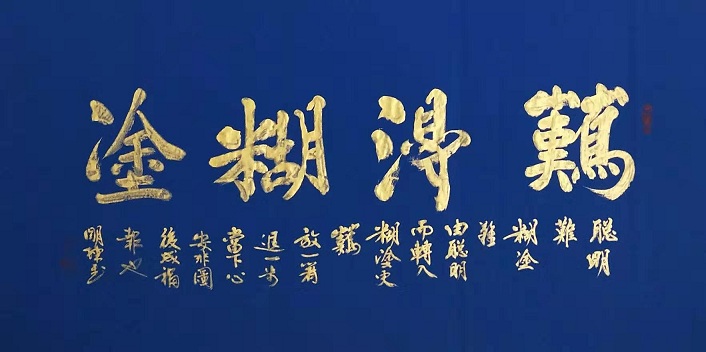 難得糊塗
聰明
難
糊塗
難
由聰明
而轉入
糊塗更
難
放一著
退一步
當下心
安非圖
後成福
報也